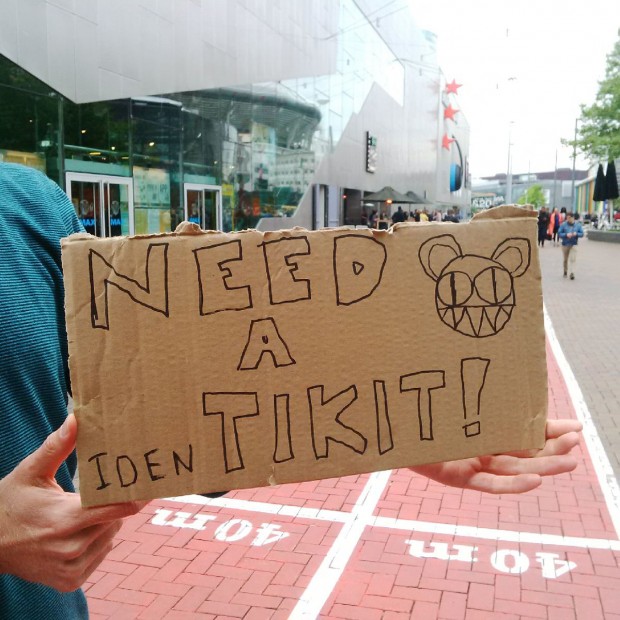 NEED
A
IDENTIKIT!
40m
40m